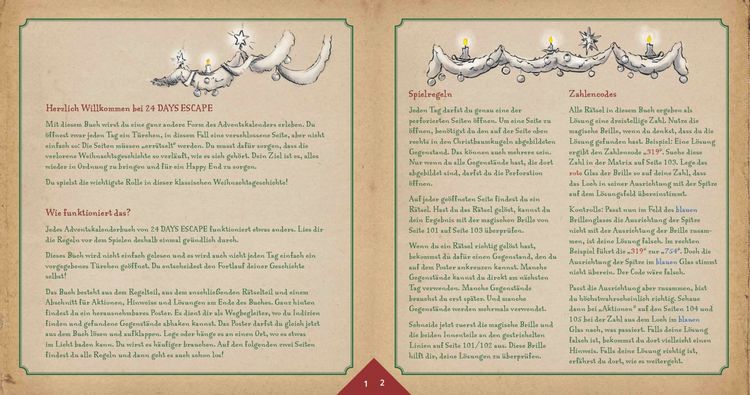 Herzlich Willkommen bei 24 DAYS ESCAPE
Mit diesem Buch wirst du eine ganz andere Form des Adventskalenders erleben. Du
öffnest zwar jeden Tag ein Türchen, in diesem Fall eine verschlossene Seite, aber nicht
einfach so: Die Seiten müssen „errätselt" werden. Du musst dafür sorgen, dass die
verlorene Weihnachtsgeschichte so verläuft, wie es sich gehört. Dein Ziel ist es, alles
wieder in Ordnung zu bringen und für ein Happy End zu sorgen.
Du spielst die wichtigste Rolle in dieser klassischen Weihnachtsgeschichte!
Wie funktioniert das?
Jedes Adventskalenderbuch von 24 DAYS ESCAPE funktioniert etwas anders. Lies dir
die Regeln vor dem Spielen deshalb einmal gründlich durch.
Dieses Buch wird nicht einfach gelesen und es wird auch nicht jeden Tag einfach ein
vorgegebenes Türchen geöffnet. Du entscheidest den Fortlauf deiner Geschichte
selbst!
Das Buch besteht aus dem Regelteil, aus dem anschließenden Rätselteil und einem
Abschnitt für Aktionen, Hinweise und Lösungen am Ende des Buches. Ganz hinten
findest du ein herausnehmbares Poster. Es dient dir als Wegbegleiter, wo du Indizien
finden und gefundene Gegenstände abhaken kannst. Das Poster darfst du gleich jetzt
aus dem Buch lösen und aufklappen. Lege oder hänge es an einen Ort, wo es etwas
im Licht baden kann. Du wirst es häufiger brauchen. Auf den folgenden zwei Seiten
findest du alle Regeln und dann geht es auch schon los!
1
Spielregeln
Jeden Tag darfst du genau eine der
perforierten Seiten öffnen. Um eine Seite zu
öffnen, benötigst du den auf der Seite oben
rechts in den Christbaumkugeln abgebildeten
Gegenstand. Das können auch mehrere sein.
Nur wenn du alle Gegenstände hast, die dort
abgebildet sind, darfst du die Perforation
öffnen.
Auf jeder geöffneten Seite findest du ein
Rätsel. Hast du das Rätsel gelöst, kannst du
dein Ergebnis mit der magischen Brille von
Seite 101 auf Seite 103 überprüfen.
Wenn du ein Rätsel richtig gelöst hast,
bekommst du dafür einen Gegenstand, den du
auf dem Poster ankreuzen kannst. Manche
Gegenstände kannst du direkt am nächsten
Tag verwenden. Manche Gegenstände
brauchst du erst später. Und manche
Gegenstände werden mehrmals verwendet.
Schneide jetzt zuerst die magische Brille und
die beiden Innenteile an den gestrichelten
Linien auf Seite 101/102 aus. Diese Brille
hilft dir, deine Lösungen zu überprüfen.
2
Zahlencodes
Alle Rätsel in diesem Buch ergeben als
Lösung eine dreistellige Zahl. Nutze die
magische Brille, wenn du denkst, dass du die
Lösung gefunden hast. Beispiel: Eine Lösung
ergibt den Zahlencode „319". Suche diese
Zahl in der Matrix auf Seite 103. Lege das
rote Glas der Brille so auf deine Zahl, dass
das Loch in seiner Ausrichtung mit der Spitze
auf dem Lösungsfeld übereinstimmt.
Kontrolle: Passt nun im Feld des blauen
Brillenglases die Ausrichtung der Spitze
nicht mit der Ausrichtung der Brille zusam-
men, ist deine Lösung falsch. Im rechten
Beispiel führt die „319" zur „754". Doch die
Ausrichtung der Spitze im blauen Glas stimmt
nicht überein. Der Code wäre falsch.
Passt die Ausrichtung aber zusammen, bist
du höchstwahrscheinlich richtig. Schaue
dann bei „Aktionen" auf den Seiten 104 und
105 bei der Zahl aus dem Loch im blauen
Glas nach, was passiert. Falls deine Lösung
falsch ist, bekommst du dort vielleicht einen
Hinweis. Falls deine Lösung richtig ist,
erfährst du dort, wie es weitergeht.